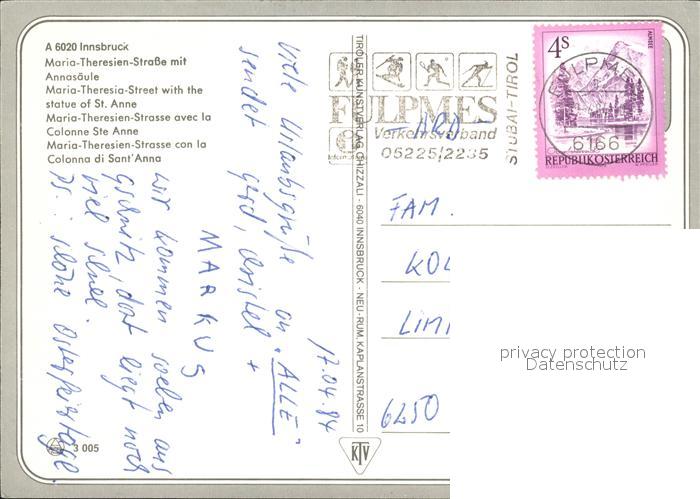 A 6020 Innsbruck
Maria-Theresien-Straße mit
Annasäule
Maria-Theresia-Street with the
statue of St. Anne
Maria-Theresien-Strasse avec la
Colonne Ste Anne
Maria-Theresien-Strasse con la
Colonna di Sant'Anna
17.04.84
Viele Urlaubsgrüße an „ALLE"
sendet Gerd, Christel +
MARKUS
Wir kommen soeben aus
Gschnitz, dort liegt noch
viel Schnee.
PS.: schöne Osterfeiertage.
3 005
TIROLER KUNSTVERLAG CHIZZALI · 6040 INNSBRUCK - NEU-RUM, KAPLANSTRASSE 10
KTV
FULPMES
Verkehrsverband
05225/2235
STUBAI-TIROL
FULPMES
6166
4S
ALMSEE
REPUBLIK ÖSTERREICH
FAM.
KOL
LIM
6250
privacy protection
Datenschutz